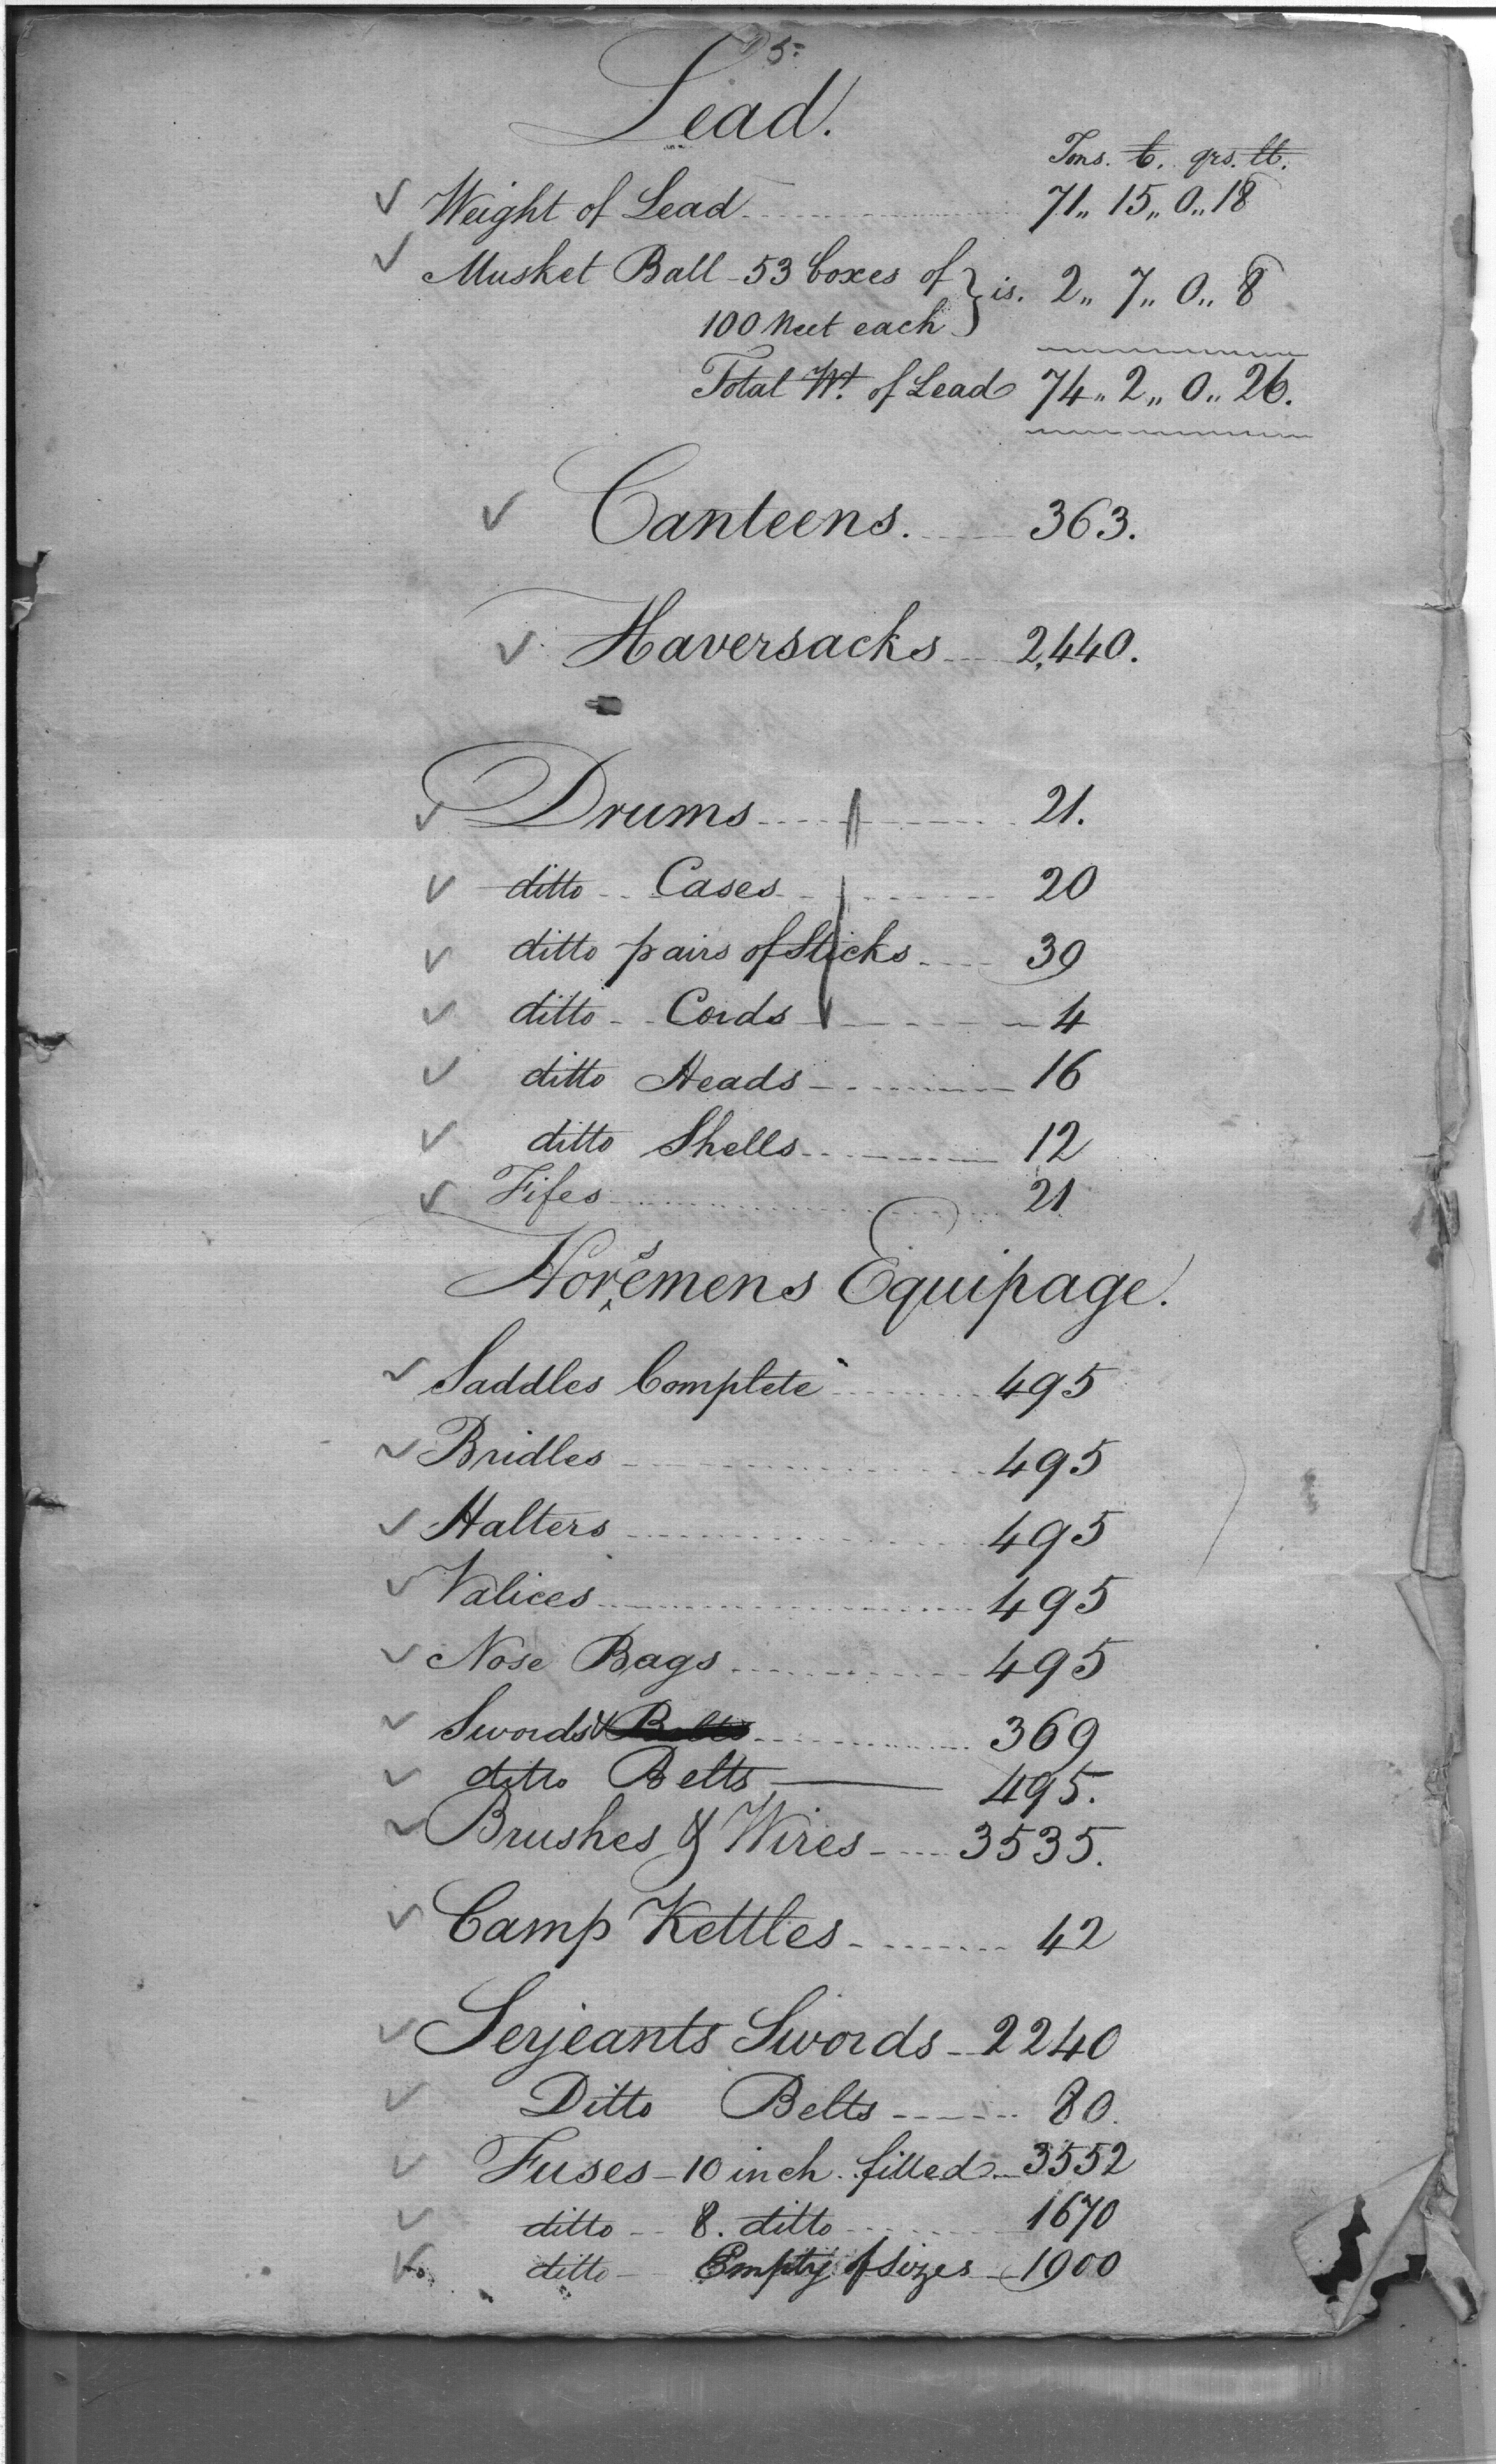 5.
Lead.
Tons. C. qrs. lb.
✓ Weight of Lead 71,, 15,, 0,, 18
✓ Musket Ball - 53 boxes of } is. 2,, 7,, 0,, 8
100 Neet each
Total Wt. of Lead 74,, 2,, 0,, 26.
✓ Canteens. 363.
✓ Haversacks 2,440.
✓ Drums 21.
✓ ditto Cases 20
✓ ditto pairs of Sticks 39
✓ ditto Cords 4
✓ ditto Heads 16
✓ ditto Shells 12
✓ Fifes 21
Horsemens Equipage.
✓ Saddles Complete 495
✓ Bridles 495
✓ Halters 495
✓ Valices 495
✓ Nose Bags 495
✓ Swords & Belts 369
✓ ditto Belts 495.
✓ Brushes & Wires 3535.
✓ Camp Kettles 42
✓ Serjeants Swords 2240
✓ Ditto Belts 80.
✓ Fuses - 10 inch. filled 3552
✓ ditto 8. ditto 1670
✓ ditto Empty of sizes 1900